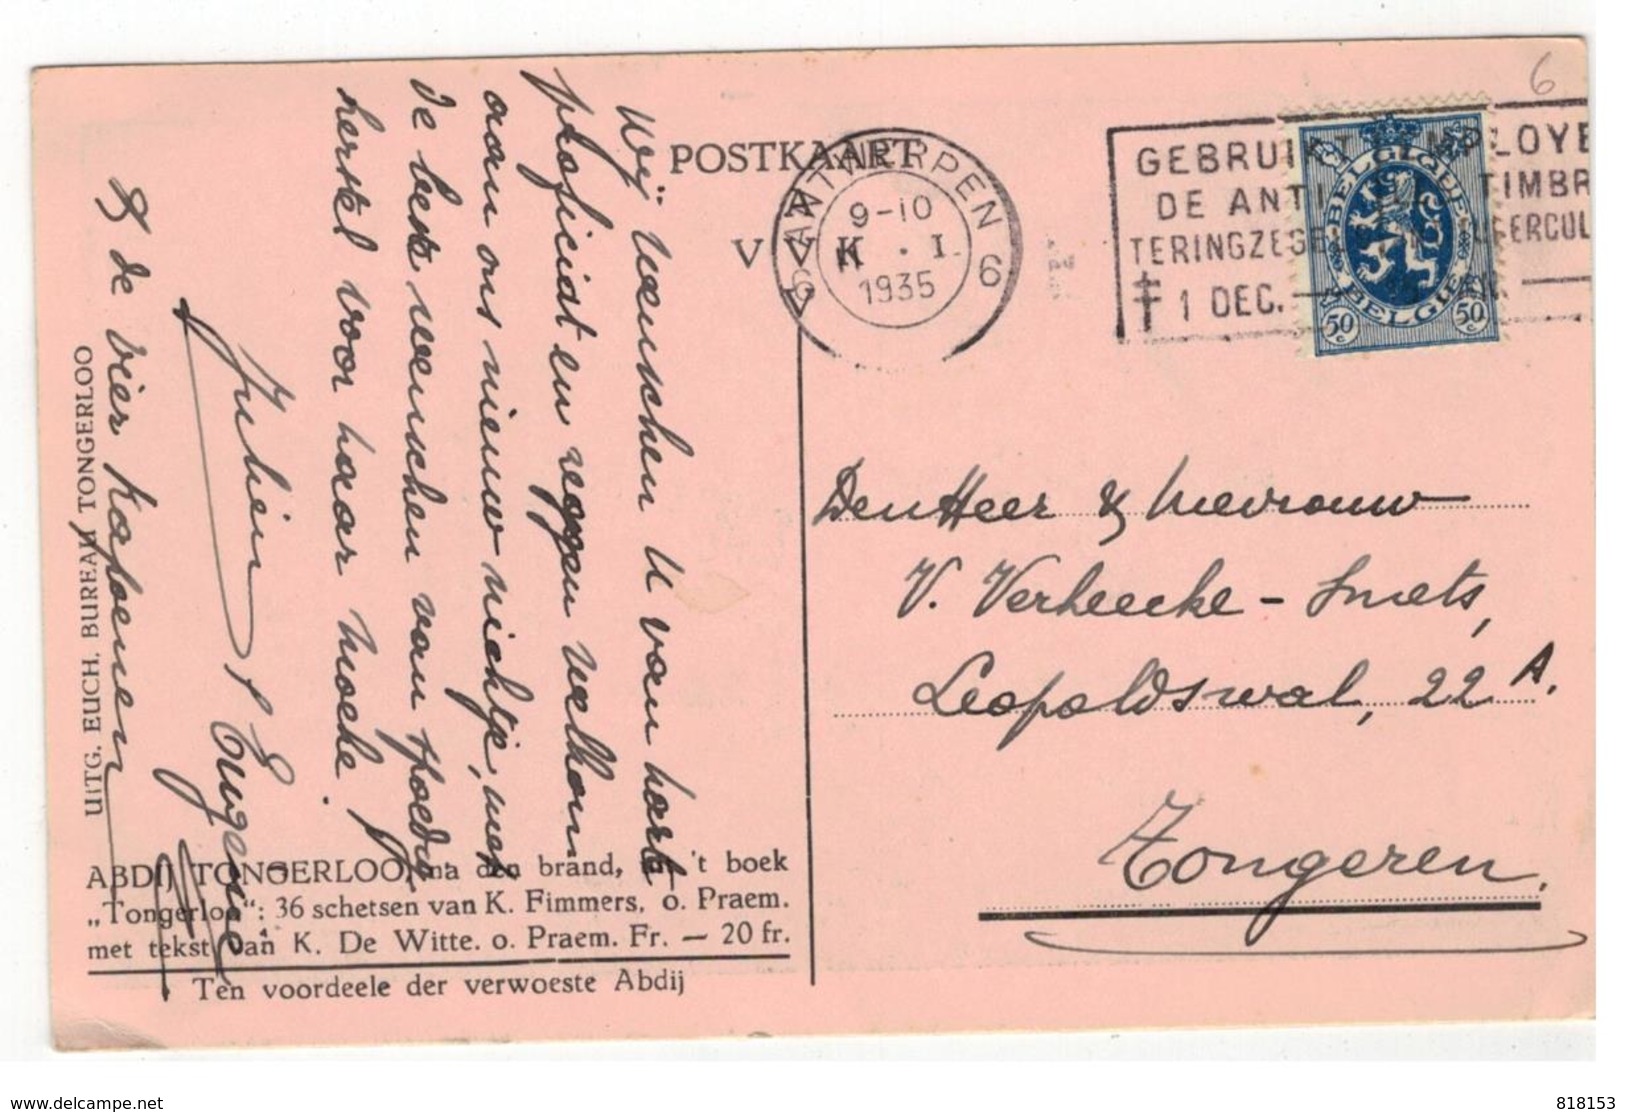 6
POSTKAART
ANTWERPEN 6
9-10
V V K . I.
1935
GEBRUI EMPLOYE
DE ANTI TIMBR
TERINGZEGE ERCUL
1 DEC.
BELGIQUE
BELGIË
50 c 50 c
Wij wenschen U van harte
proficiat en zeggen welkom
aan ons nieuw nichtje, met
de beste wenschen van spoedig
herstel voor haar moeke.
Julien & Eugenie
& de vier Kapoenen
Den Heer & Mevrouw
V. Verheecke - Smets,
Leopoldswal, 22 A.
Tongeren.
UITG. EUCH. BUREAU TONGERLOO
ABDIJ TONGERLOO, na den brand, 't boek
„Tongerloo": 36 schetsen van K. Fimmers, o. Praem.
met tekst van K. De Witte. o. Praem. Fr. — 20 fr.
Ten voordeele der verwoeste Abdij
www.delcampe.net
818153